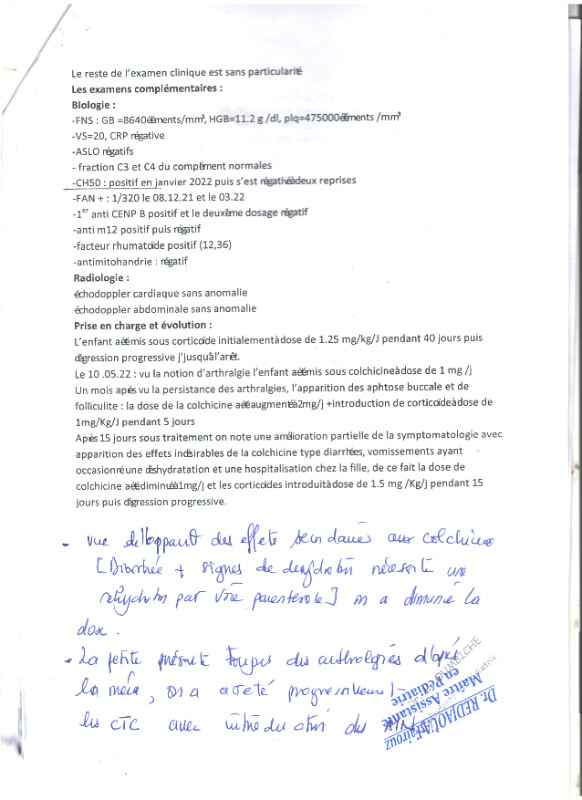 Le reste de l'examen clinique est sans particularité
Les examens complémentaires :
Biologie :
-FNS : GB =8640éléments/mm³, HGB=11.2 g /dl, plq=475000éléments /mm³
-VS=20, CRP négative
-ASLO négatifs
- fraction C3 et C4 du complément normales
-CH50 : positif en janvier 2022 puis s'est négativéà deux reprises
-FAN + : 1/320 le 08.12.21 et le 03.22
-1er anti CENP B positif et le deuxème dosage négatif
-anti m12 positif puis négatif
-facteur rhumatoïde positif (12,36)
-antimitohandrie : négatif
Radiologie :
échodoppler cardiaque sans anomalie
échodoppler abdominale sans anomalie
Prise en charge et évolution :
L'enfant aétémis sous corticoïde initialementàdose de 1.25 mg/kg/J pendant 40 jours puis
dégression progressive j'jusquàl'arrêt.
Le 10 .05.22 : vu la notion d'arthralgie l'enfant aétémis sous colchicineàdose de 1 mg /j
Un mois après vu la persistance des arthralgies, l'apparition des aphtose buccale et de
folliculite : la dose de la colchicine aétéaugmentéà2mg/j +introduction de corticoïdeàdose de
1mg/Kg/J pendant 5 jours
Après 15 jours sous traitement on note une amélioration partielle de la symptomatologie avec
apparition des effets indésirables de la colchicine type diarrhées, vomissements ayant
occasionné une déshydratation et une hospitalisation chez la fille, de ce fait la dose de
colchicine aétédiminuéà1mg/j et les corticoïdes introduitàdose de 1.5 mg /Kg/j pendant 15
jours puis dégression progressive.
- vue des effets secondaires aux colchicine
[Diarrhée + signes de nécessité une
par voie parentérale] on a diminué la
dose.
- La petite présente toujours des arthralgies d'après
la mère, on a arrêté progressivement
les CTC avec introduction des AINS
Dr. REDJAOUA Fairouz
Maître Assistante
en Pédiatrie